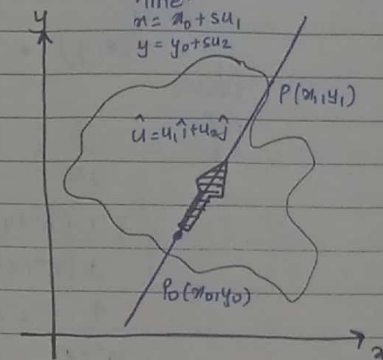 line
x = x₀ + su₁
y = y₀ + su₂
y
P(x₁, y₁)
û = u₁î + u₂ĵ
P₀(x₀, y₀)
x